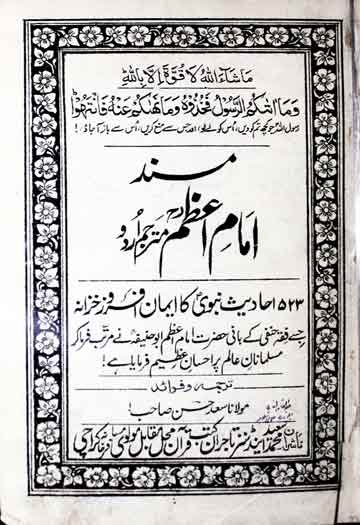 ماشاء الله لا قوة الا بالله
وما اتٰكم الرسول فخذوه وما نهٰكم عنه فانتهوا
رسول اللہ جو کچھ تم کو دیں، اُس کو لے لو! اور جس سے منع کریں، اُس سے باز آ جاؤ!
مسند
امامِ اعظمؒ مترجم اردو
۵۲۳ احادیث نبویؐ کا ایمان افروز خزانہ
جسے فقہ حنفی کے بانی حضرت امام اعظم ابوحنیفہؒ نے مرتب فرما کر
مسلمانانِ عالم پر احسانِ عظیم فرمایا ہے!
ترجمہ و فوائد
مولانا سعد حسن صاحب!
ناشران محمد سعید اینڈ سنز تاجران کتب قرآن محل مقابل مولوی مسافر خانہ کراچی